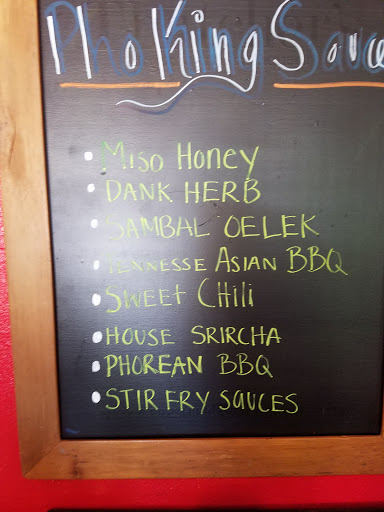 Pho King Sauce
• Miso Honey
• DANK HERB
• SAMBAL OELEK
• TENNESSE ASIAN BBQ
• SWEET CHILI
• HOUSE SRIRCHA
• PHOREAN BBQ
• STIR FRY SAUCES